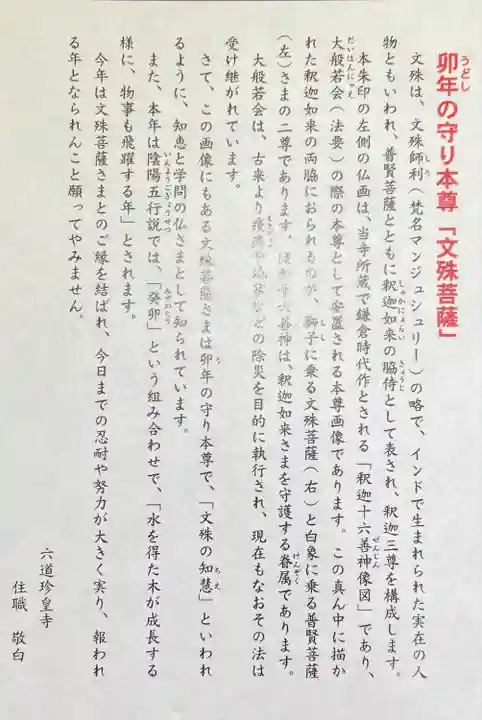 卯年の守り本尊「文殊菩薩」
文殊は、文殊師利(梵名マンジュシュリー)の略で、インドで生まれられた実在の人
物ともいわれ、普賢菩薩とともに釈迦如来の脇侍として表され、釈迦三尊を構成します。
本朱印の左側の仏画は、当寺所蔵で鎌倉時代作とされる「釈迦十六善神像図」であり、
大般若会(法要)の際の本尊として安置される本尊画像であります。この真ん中に描か
れた釈迦如来の両脇におられるのが、獅子に乗る文殊菩薩(右)と白象に乗る普賢菩薩
(左)さまの二尊であります。 善神は、釈迦如来さまを守護する眷属であります。
大般若会は、古来より などの除災を目的に執行され、現在もなおその法は
受け継がれています。
さて、この画像にもある文殊菩薩さまは卯年の守り本尊で、「文殊の知慧」といわれ
るように、知恵と学問の仏さまとして知られています。
また、本年は陰陽五行説では、「癸卯」という組み合わせで、「水を得た木が成長する
様に、物事も飛躍する年」とされます。
今年は文殊菩薩さまとのご縁を結ばれ、今日までの忍耐や努力が大きく実り、報われ
る年となられんこと願ってやみません。
六道珍皇寺
住職 敬白